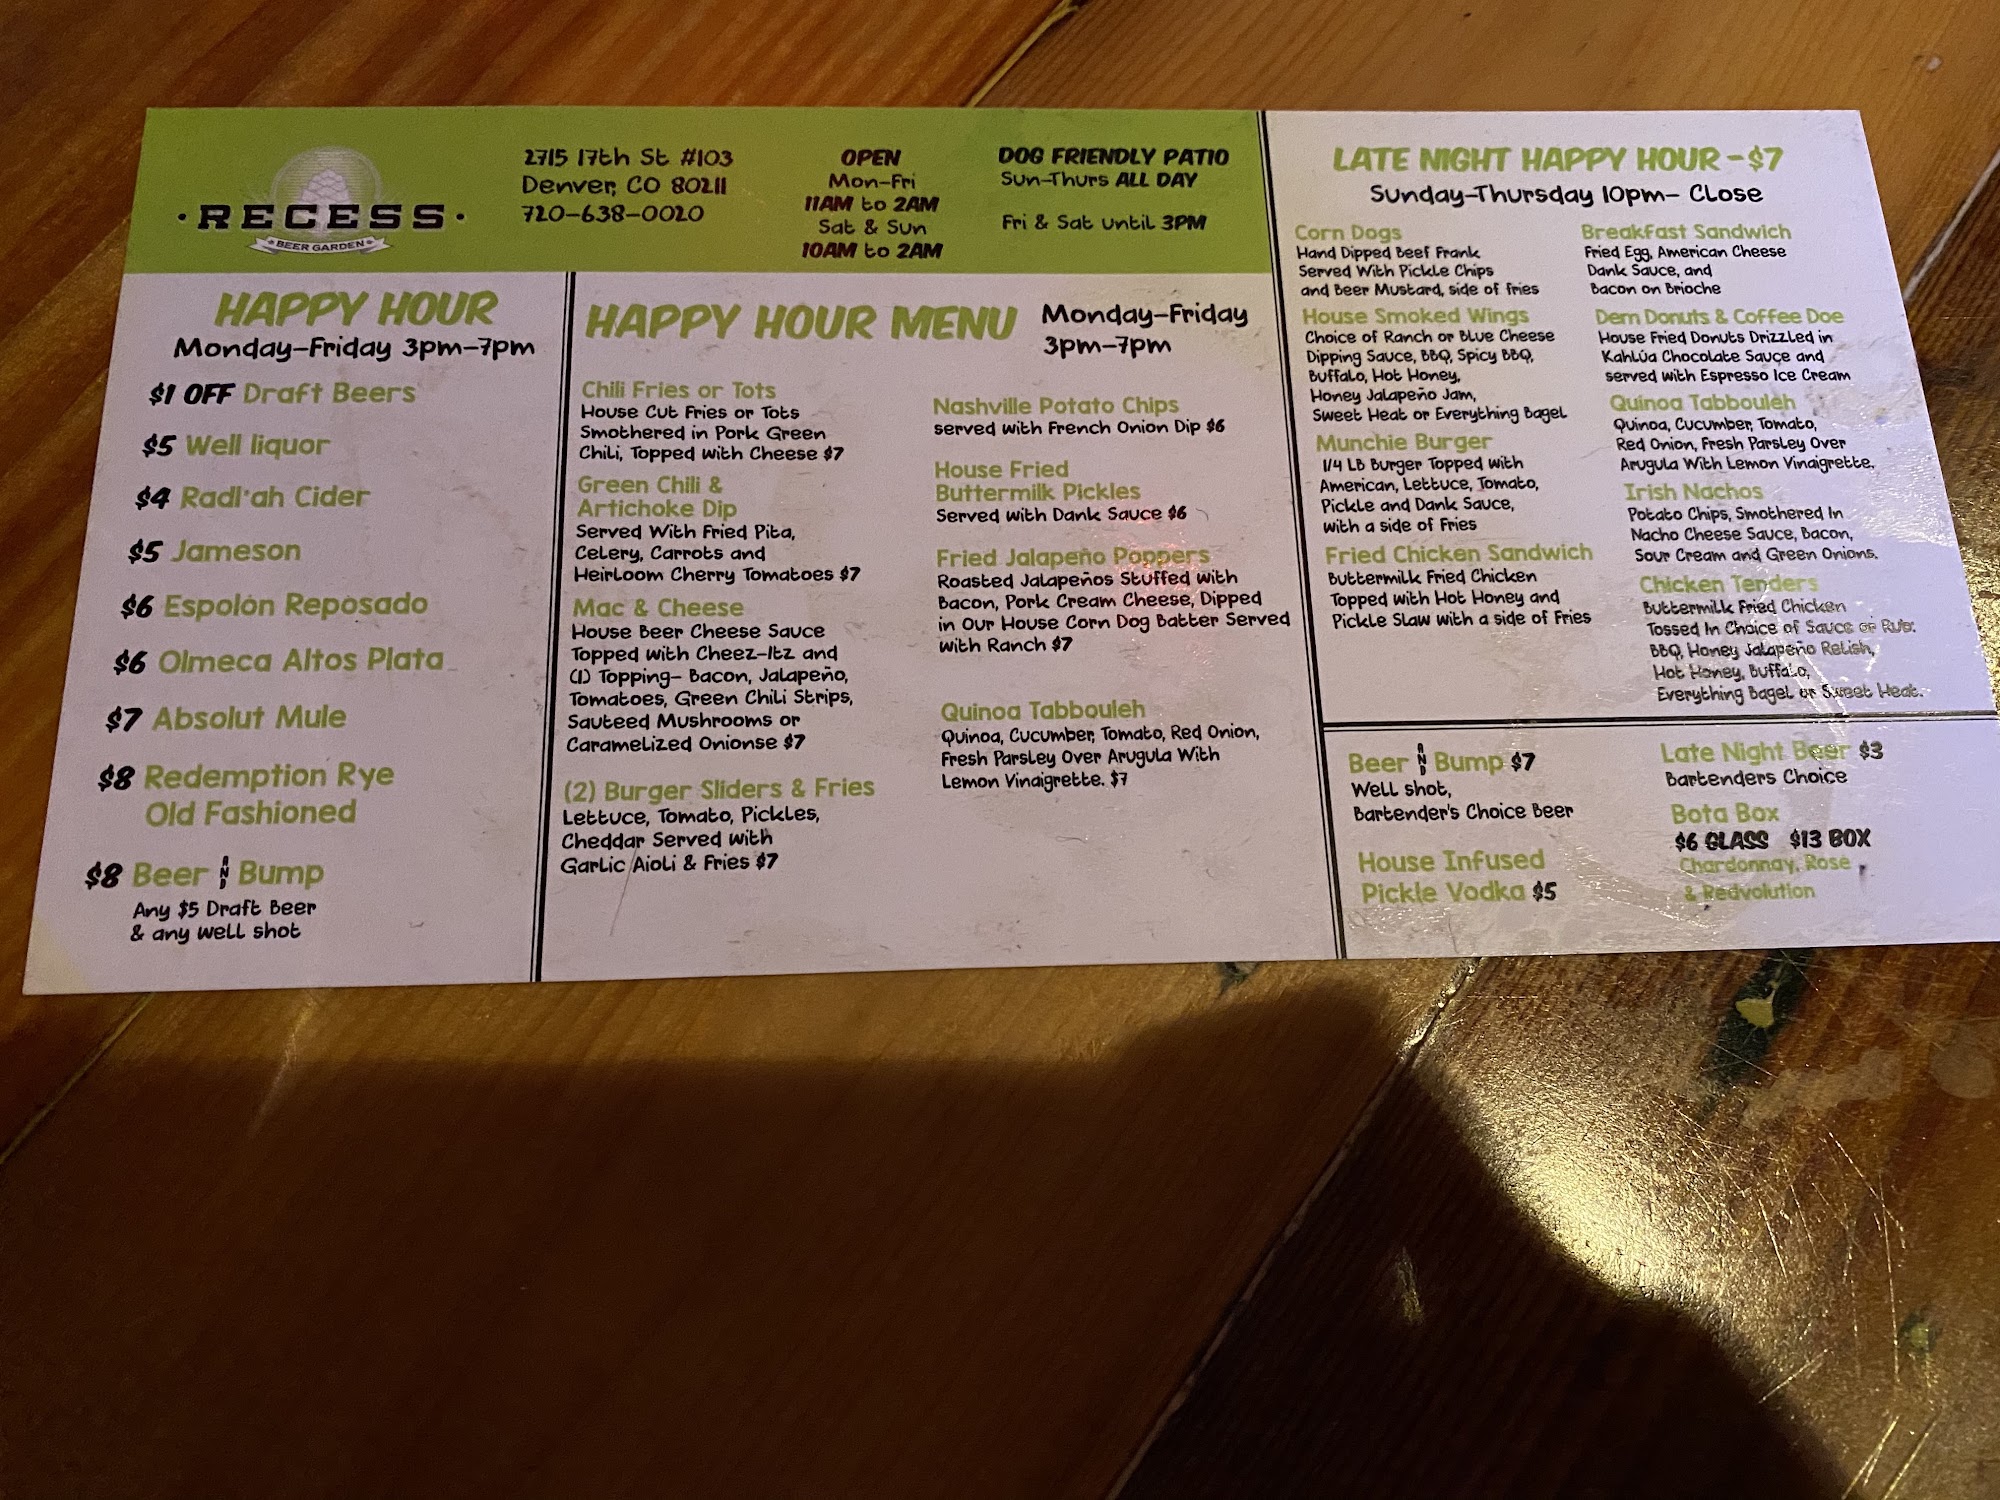 RECESS
BEER GARDEN
2715 17th St #103
Denver, CO 80211
720-638-0020
OPEN
Mon-Fri
11AM to 2AM
Sat & Sun
10AM to 2AM
DOG FRIENDLY PATIO
Sun-Thurs ALL DAY
Fri & Sat until 3PM
HAPPY HOUR
Monday-Friday 3pm-7pm
$1 OFF Draft Beers
$5 Well liquor
$4 Radl'ah Cider
$5 Jameson
$6 Espolón Reposado
$6 Olmeca Altos Plata
$7 Absolut Mule
$8 Redemption Rye
Old Fashioned
$8 Beer AND Bump
Any $5 Draft Beer
& any well shot
HAPPY HOUR MENU
Monday-Friday
3pm-7pm
Chili Fries or Tots
House Cut Fries or Tots
Smothered in Pork Green
Chili, Topped with Cheese $7
Green Chili &
Artichoke Dip
Served With Fried Pita,
Celery, Carrots and
Heirloom Cherry Tomatoes $7
Mac & Cheese
House Beer Cheese Sauce
Topped with Cheez-Itz and
(1) Topping- Bacon, Jalapeño,
Tomatoes, Green Chili Strips,
Sauteed Mushrooms or
Caramelized Onionse $7
(2) Burger Sliders & Fries
Lettuce, Tomato, Pickles,
Cheddar Served with
Garlic Aioli & Fries $7
Nashville Potato Chips
served with French Onion Dip $6
House Fried
Buttermilk Pickles
Served with Dank Sauce $6
Fried Jalapeño Poppers
Roasted Jalapeños Stuffed with
Bacon, Pork Cream Cheese, Dipped
in Our House Corn Dog Batter Served
with Ranch $7
Quinoa Tabbouleh
Quinoa, Cucumber, Tomato, Red Onion,
Fresh Parsley Over Arugula With
Lemon Vinaigrette. $7
LATE NIGHT HAPPY HOUR - $7
Sunday-Thursday 10pm- Close
Corn Dogs
Hand Dipped Beef Frank
Served With Pickle Chips
and Beer Mustard, side of fries
House Smoked Wings
Choice of Ranch or Blue Cheese
Dipping Sauce, BBQ, Spicy BBQ,
Buffalo, Hot Honey,
Honey Jalapeño Jam,
Sweet Heat or Everything Bagel
Munchie Burger
1/4 LB Burger Topped with
American, Lettuce, Tomato,
Pickle and Dank Sauce,
with a side of Fries
Fried Chicken Sandwich
Buttermilk Fried Chicken
Topped with Hot Honey and
Pickle Slaw with a side of Fries
Breakfast Sandwich
Fried Egg, American Cheese
Dank Sauce, and
Bacon on Brioche
Dem Donuts & Coffee Doe
House Fried Donuts Drizzled in
Kahlúa Chocolate Sauce and
served with Espresso Ice Cream
Quinoa Tabbouleh
Quinoa, Cucumber, Tomato,
Red Onion, Fresh Parsley Over
Arugula With Lemon Vinaigrette.
Irish Nachos
Potato Chips, Smothered In
Nacho Cheese Sauce, Bacon,
Sour Cream and Green Onions.
Chicken Tenders
Buttermilk Fried Chicken
Tossed In Choice of Sauce or Rub:
BBQ, Honey Jalapeño Relish,
Hot Honey, Buffalo,
Everything Bagel or Sweet Heat.
Beer AND Bump $7
Well shot,
Bartender's Choice Beer
House Infused
Pickle Vodka $5
Late Night Beer $3
Bartenders Choice
Bota Box
$6 GLASS $13 BOX
Chardonnay, Rose
& Redvolution